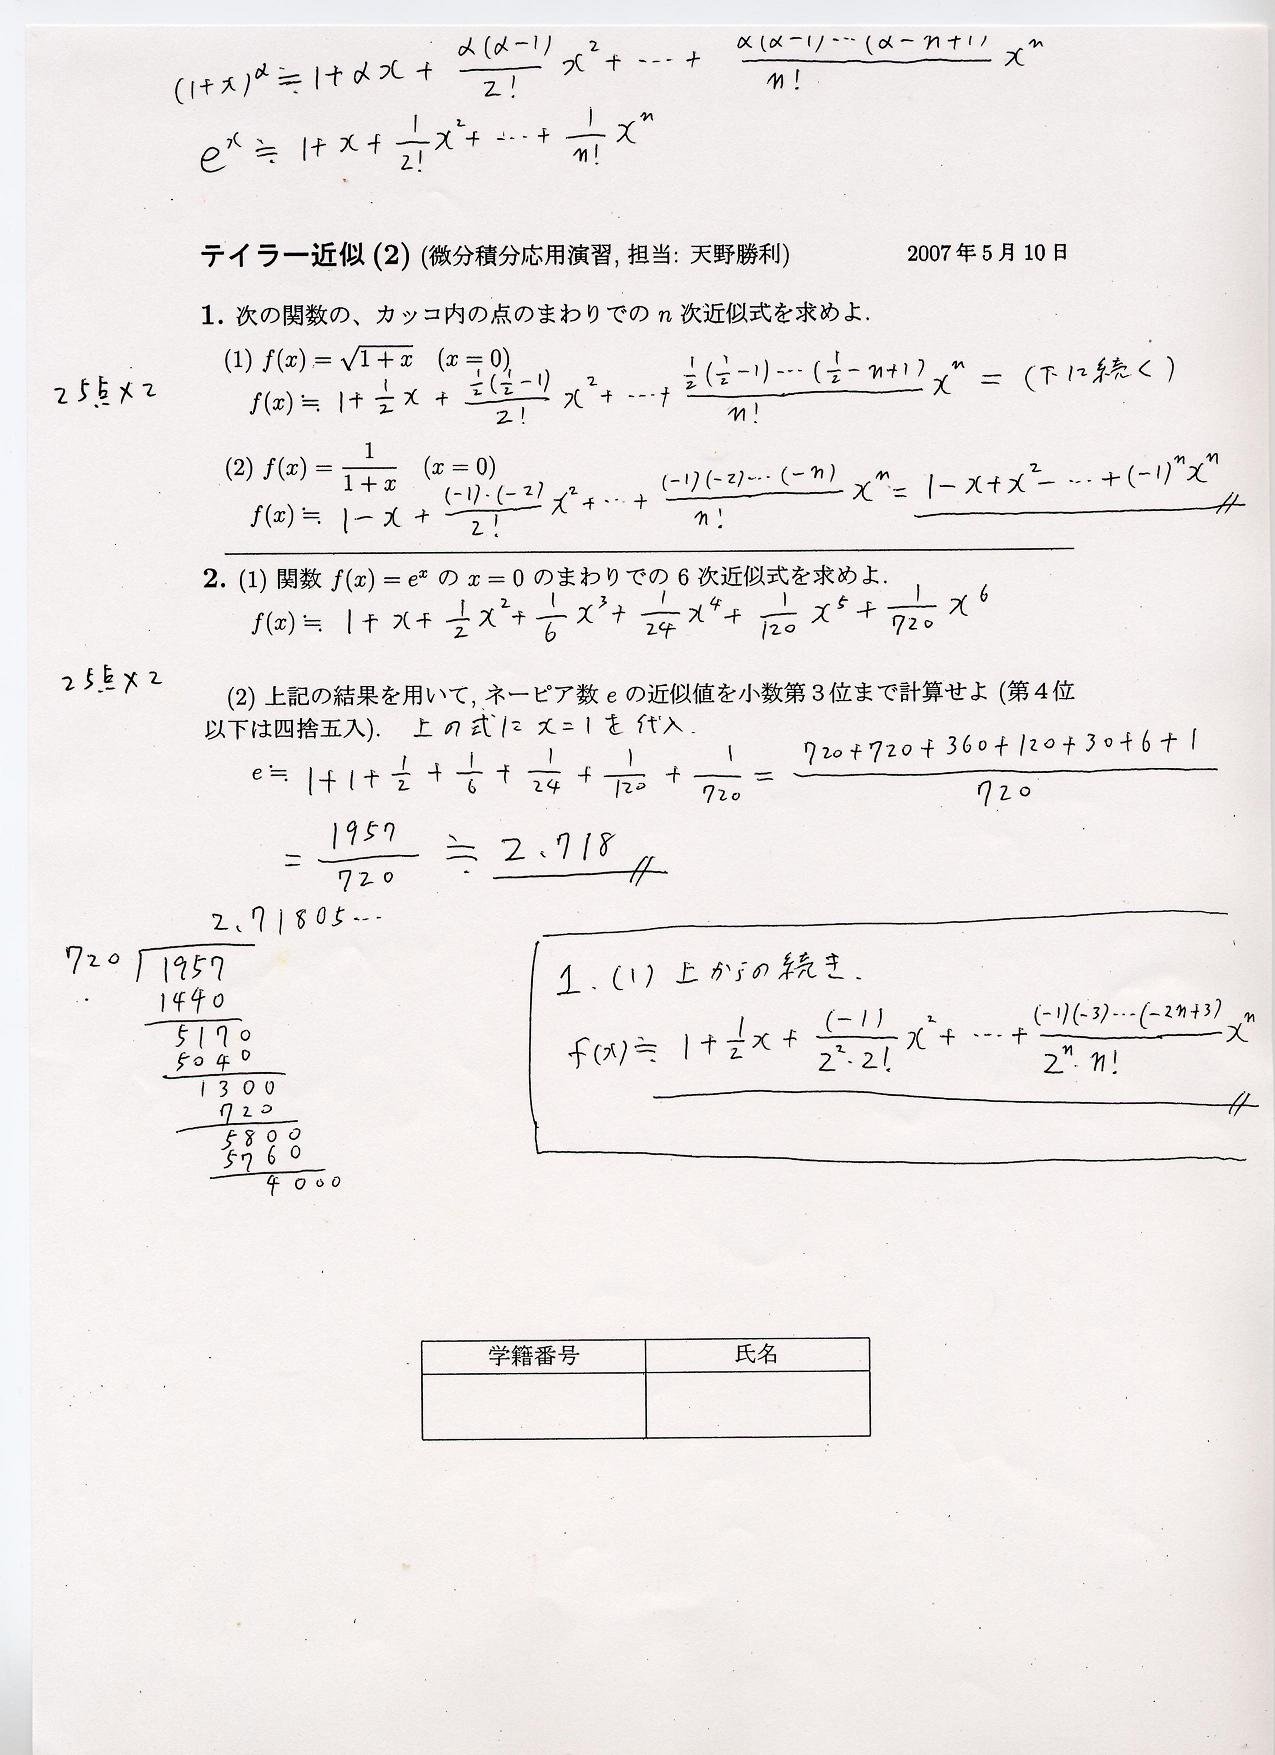 (1+x)^α ≒ 1+αx + α(α-1)/2! x² + ⋯ + α(α-1)⋯(α-n+1)/n! x^n
e^x ≒ 1+x+ 1/2! x² + ⋯ + 1/n! x^n
テイラー近似 (2) (微分積分応用演習, 担当: 天野勝利) 2007年5月10日
1. 次の関数の、カッコ内の点のまわりでの n 次近似式を求めよ.
(1) f(x) = √(1+x) (x=0)
25点×2
f(x) ≒ 1+ 1/2 x + 1/2(1/2-1)/2! x² + ⋯ + 1/2(1/2-1)⋯(1/2-n+1)/n! x^n = (下に続く)
(2) f(x) = 1/(1+x) (x=0)
f(x) ≒ 1-x+ (-1)·(-2)/2! x² + ⋯ + (-1)(-2)⋯(-n)/n! x^n = 1-x+x²-⋯+(-1)^n x^n
2. (1) 関数 f(x) = e^x の x=0 のまわりでの 6 次近似式を求めよ.
f(x) ≒ 1+x+ 1/2 x² + 1/6 x³ + 1/24 x⁴ + 1/120 x⁵ + 1/720 x⁶
25点×2
(2) 上記の結果を用いて, ネーピア数 e の近似値を小数第3位まで計算せよ (第4位
以下は四捨五入). 上の式に x=1 を代入.
e ≒ 1+1+ 1/2 + 1/6 + 1/24 + 1/120 + 1/720 = (720+720+360+120+30+6+1)/720
= 1957/720 ≒ 2.718
2.71805⋯
720 1957
1440
5170
5040
1300
720
5800
5760
4000
1. (1) 上からの続き.
f(x) ≒ 1+ 1/2 x + (-1)/(2²·2!) x² + ⋯ + (-1)(-3)⋯(-2n+3)/(2^n·n!) x^n
学籍番号 氏名